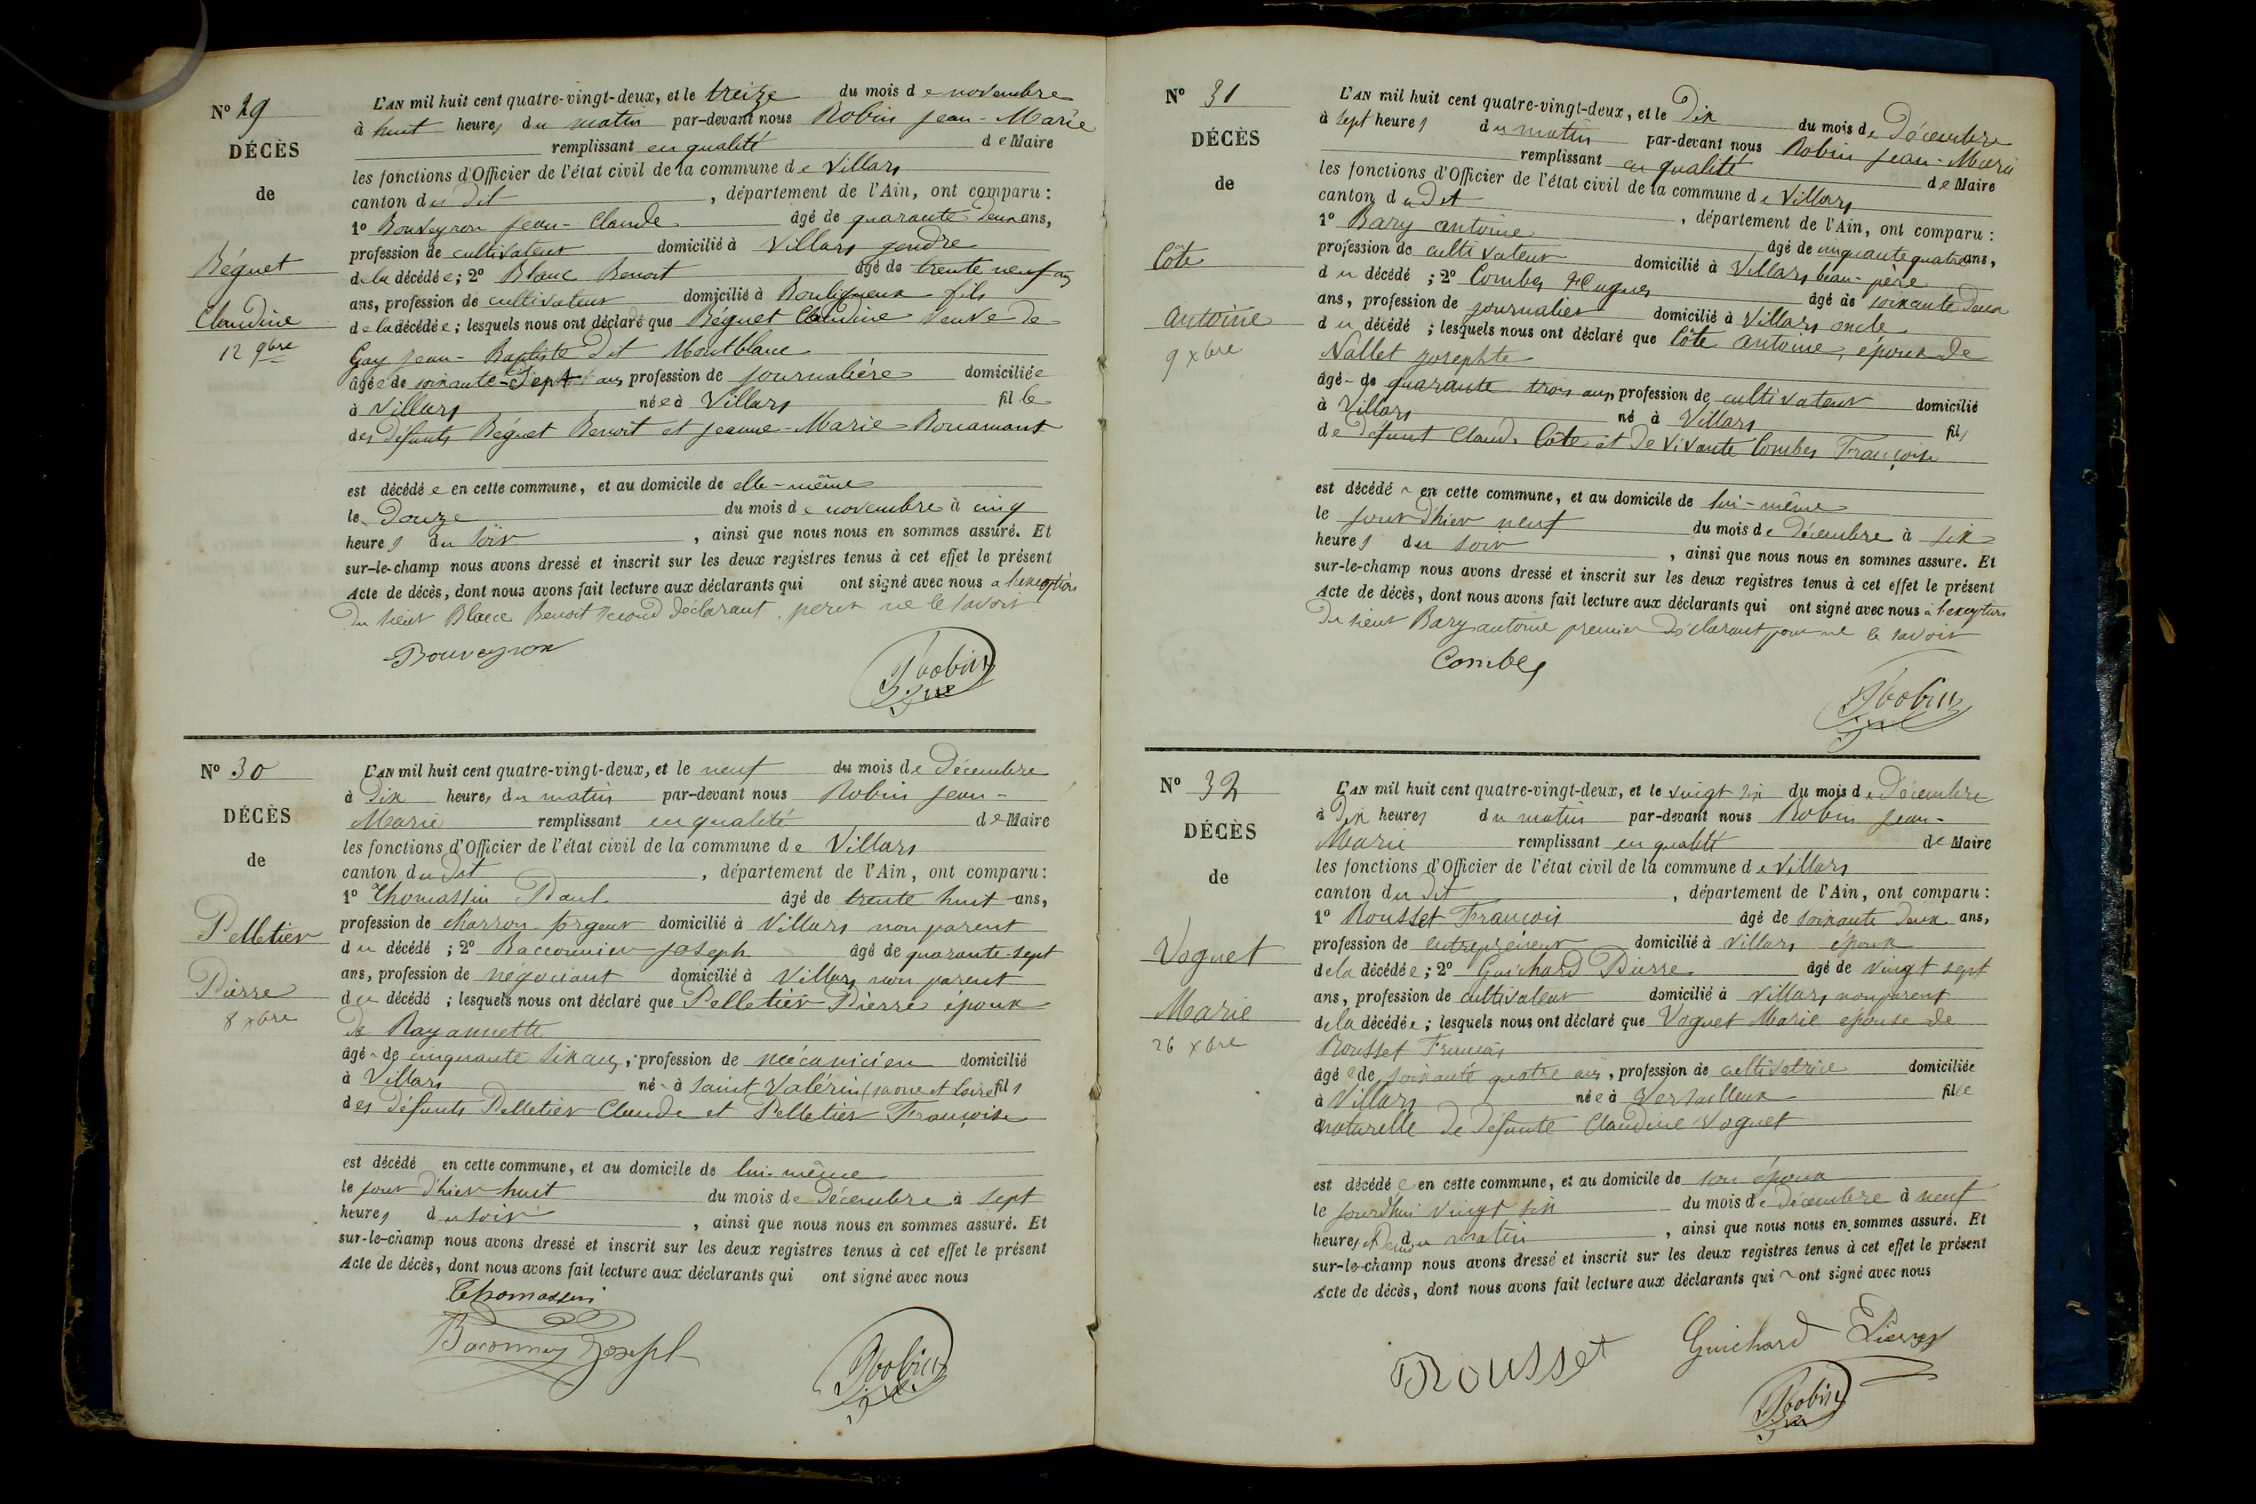 N° 29
DÉCÈS
de
Béguet
Claudine
12 9bre
L'AN mil huit cent quatre-vingt-deux, et le treize du mois de novembre
à huit heures du matin par-devant nous Robin Jean-Marie
remplissant en qualité de Maire
les fonctions d'Officier de l'état civil de la commune de Villars
canton du dit , département de l'Ain, ont comparu :
1° Bouveyron Jean-Claude âgé de quarante deux ans,
profession de cultivateur domicilié à Villars gendre
de la décédée ; 2° Blanc Benoit âgé de trente neuf ans
ans, profession de cultivateur domicilié à Bouligneux fils
de la décédée ; lesquels nous ont déclaré que Béguet Claudine veuve de
Gay Jean-Baptiste dit Montblanc
âgée de soixante-sept ans profession de journalière domiciliée
à Villars née à Villars fille
des défunts Béguet Benoit et Jeanne-Marie Bonamant
est décédée en cette commune, et au domicile de elle-même
le Douze du mois de novembre à cinq
heures du soir , ainsi que nous nous en sommes assuré. Et
sur-le-champ nous avons dressé et inscrit sur les deux registres tenus à cet effet le présent
Acte de décès, dont nous avons fait lecture aux déclarants qui ont signé avec nous à l'exception
du sieur Blanc Benoit second déclarant pour ne le savoir
Bouveyron
Robin
N° 30
DÉCÈS
de
Pelletier
Pierre
8 xbre
L'AN mil huit cent quatre-vingt-deux, et le neuf du mois de Décembre
à Dix heures du matin par-devant nous Robin Jean-
Marie remplissant en qualité de Maire
les fonctions d'Officier de l'état civil de la commune de Villars
canton du dit , département de l'Ain, ont comparu :
1° Thomassin Paul âgé de trente huit ans,
profession de charron forgeur domicilié à Villars non parent
du décédé ; 2° Bacconnier Joseph âgé de quarante-sept
ans, profession de négociant domicilié à Villars non parent
du décédé ; lesquels nous ont déclaré que Pelletier Pierre époux
de Ray annette
âgé de cinquante six ans, profession de mécanicien domicilié
à Villars né à saint Valérin (saone et Loire) fils
des défunts Pelletier Claude et Pelletier Françoise
est décédé en cette commune, et au domicile de lui-même
le jour d'hier huit du mois de Décembre à sept
heures du soir , ainsi que nous nous en sommes assuré. Et
sur-le-champ nous avons dressé et inscrit sur les deux registres tenus à cet effet le présent
Acte de décès, dont nous avons fait lecture aux déclarants qui ont signé avec nous
Thomassin
Baconnier Joseph
Robin
N° 31
DÉCÈS
de
Côte
antoine
9 xbre
L'AN mil huit cent quatre-vingt-deux, et le Dix du mois de Décembre
à sept heures du matin par-devant nous Robin Jean-Marie
remplissant en qualité de Maire
les fonctions d'Officier de l'état civil de la commune de Villars
canton du dit , département de l'Ain, ont comparu :
1° Bary antoine âgé de cinquante quatre ans,
profession de cultivateur domicilié à Villars beau-père
du décédé ; 2° Combes Hugues âgé de soixante deux
ans, profession de journalier domicilié à Villars oncle
du décédé ; lesquels nous ont déclaré que Côte antoine, époux de
Nallet Josephte
âgé de quarante trois ans, profession de cultivateur domicilié
à Villars né à Villars fils
de défunt Claude Côte et de vivante Combes Françoise
est décédé en cette commune, et au domicile de lui-même
le jour d'hier neuf du mois de Décembre à six
heures du soir , ainsi que nous nous en sommes assuré. Et
sur-le-champ nous avons dressé et inscrit sur les deux registres tenus à cet effet le présent
Acte de décès, dont nous avons fait lecture aux déclarants qui ont signé avec nous à l'exception
du sieur Bary antoine premier déclarant pour ne le savoir
Combes
Robin
N° 32
DÉCÈS
de
Voguet
Marie
26 xbre
L'AN mil huit cent quatre-vingt-deux, et le vingt six du mois de Décembre
à Dix heures du matin par-devant nous Robin Jean-
Marie remplissant en qualité de Maire
les fonctions d'Officier de l'état civil de la commune de Villars
canton du dit , département de l'Ain, ont comparu :
1° Rousset François âgé de soixante deux ans,
profession de entrepreneur domicilié à Villars époux
de la décédée ; 2° Guichard Pierre âgé de vingt sept
ans, profession de cultivateur domicilié à Villars non parent
de la décédée ; lesquels nous ont déclaré que Voguet Marie épouse de
Rousset François
âgée de soixante quatre ans, profession de cultivatrice domiciliée
à Villars née à Versailleux fille
naturelle de défunte Claudine Voguet
est décédée en cette commune, et au domicile de son époux
le jourd'hui vingt six du mois de décembre à neuf
heures et Demi du matin , ainsi que nous nous en sommes assuré. Et
sur-le-champ nous avons dressé et inscrit sur les deux registres tenus à cet effet le présent
Acte de décès, dont nous avons fait lecture aux déclarants qui ont signé avec nous
Rousset Guichard Pierre
Robin